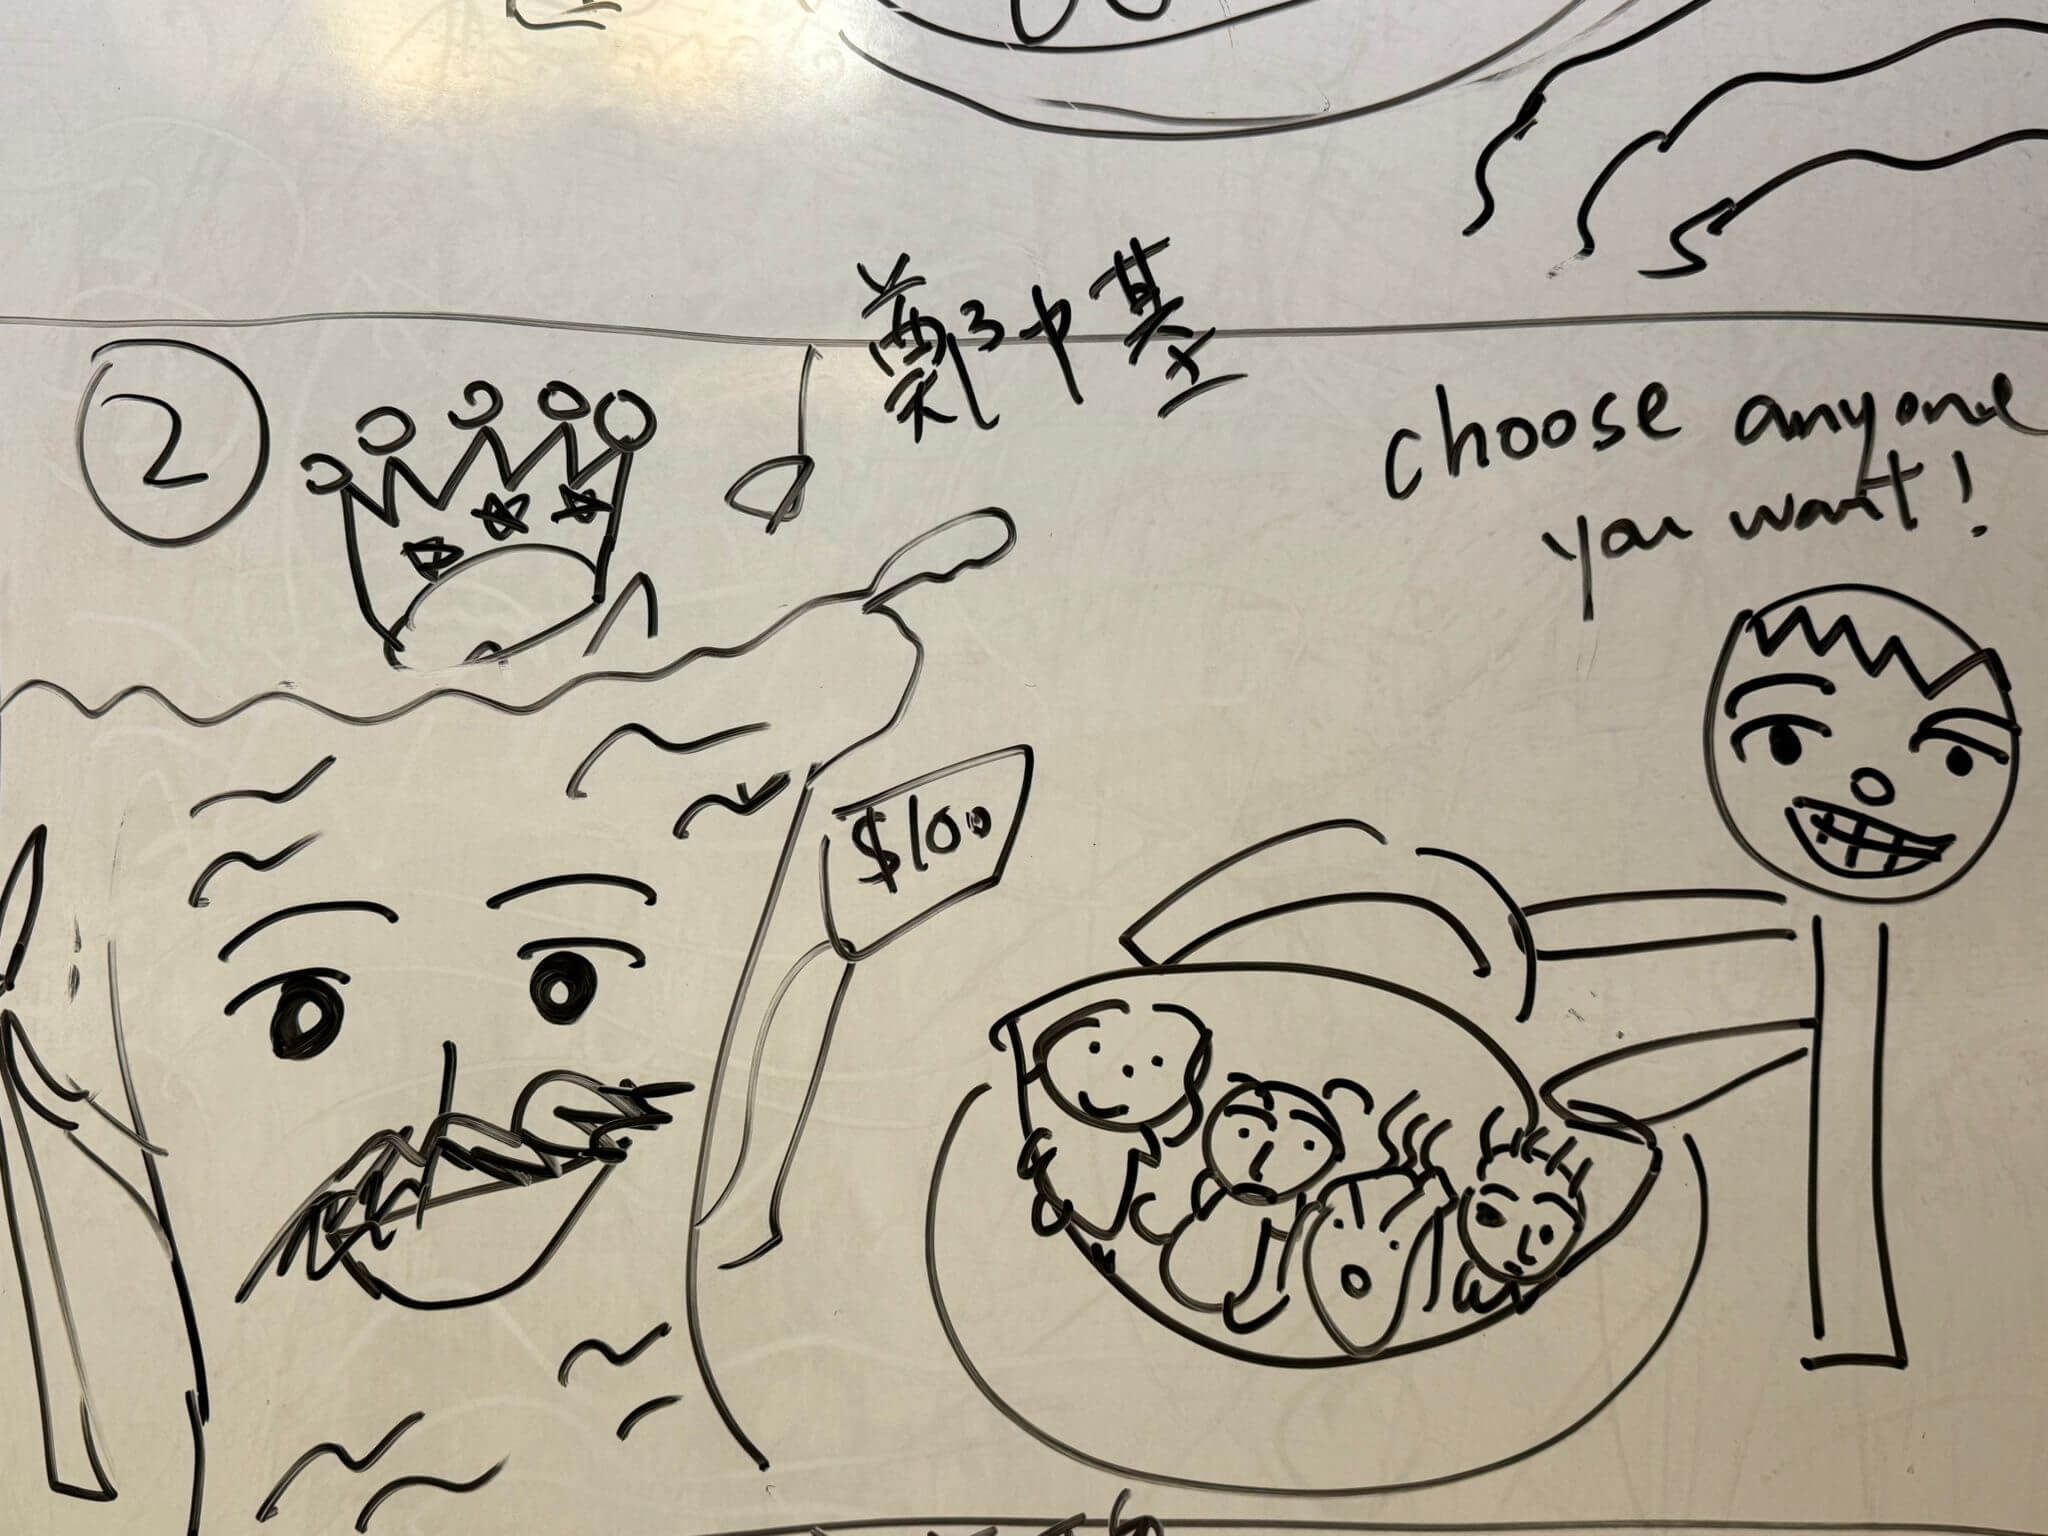 鄭中基
②
choose anyone
you want!
$100